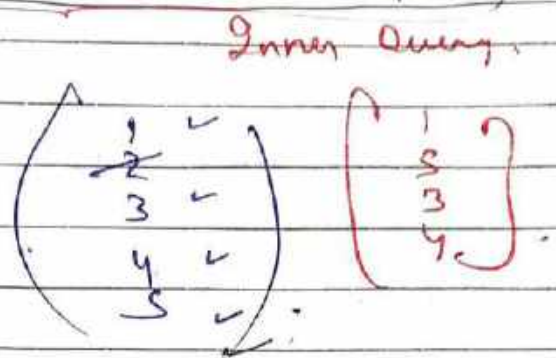 Inner Query.
1 ✓
2
3 ✓
4 ✓
5 ✓
1
5
3
4